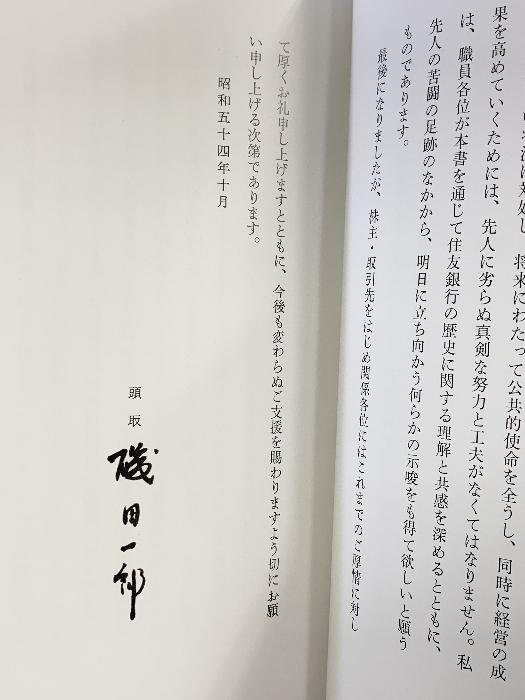 将来にわたって公共的使命を全うし、同時に経営の成
果を高めていくためには、先人に劣らぬ真剣な努力と工夫がなくてはなりません。私
は、職員各位が本書を通じて住友銀行の歴史に関する理解と共感を深めるとともに、
先人の苦闘の足跡のなかから、明日に立ち向かう何らかの示唆をも得て欲しいと願う
ものであります。
最後になりましたが、株主・取引先をはじめ関係各位にはこれまでのご厚情に対し
て厚くお礼申し上げますとともに、今後も変わらぬご支援を賜わりますよう切にお願
い申し上げる次第であります。
昭和五十四年十月
頭取
磯田一郎